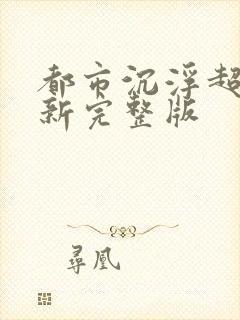 都市沉浮超
新完整版
尋凰